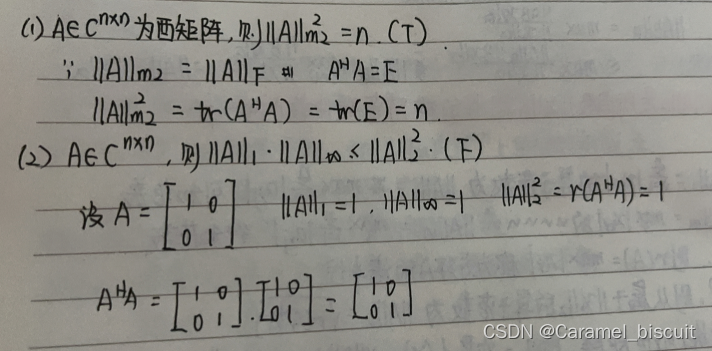 (1) A∈C^{n×n}为酉矩阵,则||A||_{m2}^2=n.(T)
∵ ||A||_{m2} = ||A||_F 且 A^HA=E
||A||_{m2}^2 = tr(A^HA) = tr(E) = n
(2) A∈C^{n×n},则||A||_1·||A||_∞ ≤ ||A||_2^2.(F)
设 A = [1 0; 0 1] ||A||_1=1,||A||_∞=1 ||A||_2^2=r(A^HA)=1
A^HA = [1 0; 0 1]·[1 0; 0 1] = [1 0; 0 1]
CSDN @Caramel_biscuit